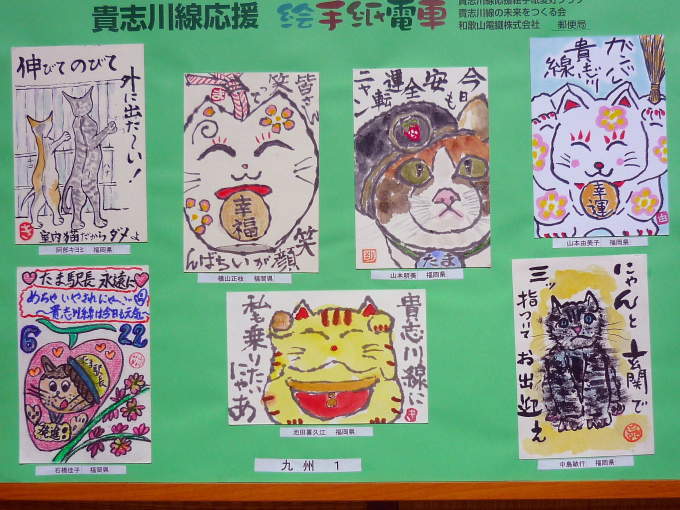 貴志川線応援 絵手紙電車
貴志川線の未来をつくる会
和歌山電鐵株式会社 郵便局
伸びて のびて
外に出た〜い!
室内猫だから ダメよ
阿部キヨミ 福岡県
皆さん
笑って
笑顔がいちばん
幸福
横山正枝 福岡県
今日も
安全
運転
ニャン
たま
山本明美 福岡県
ガンバレ
貴志川
線
幸運
山本由美子 福岡県
たま駅長 永遠に
〜貴志川線は今日も元気〜
6 22
発進
石橋佳子 福岡県
貴志川線に
私も乗りたい
にゃあ
池田喜久江 福岡県
にゃんと 玄関で
三ッ指ついて お出迎え
中島敏行 福岡県
九州 1